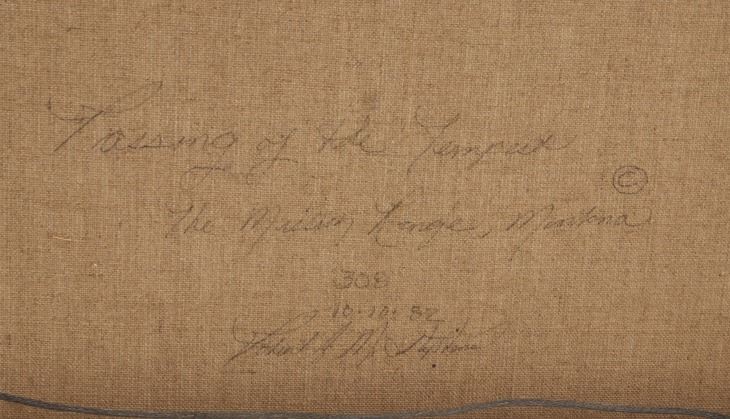 Passing of the Tempest
©
The Mission Range, Montana
308
10·10·82
Robert